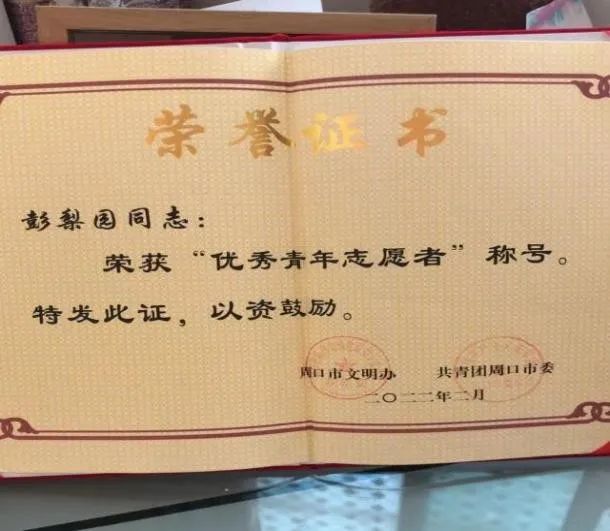 荣誉证书
彭梨园同志:
荣获“优秀青年志愿者”称号。
特发此证，以资鼓励。
周口市文明办 共青团周口市委
二〇二二年二月